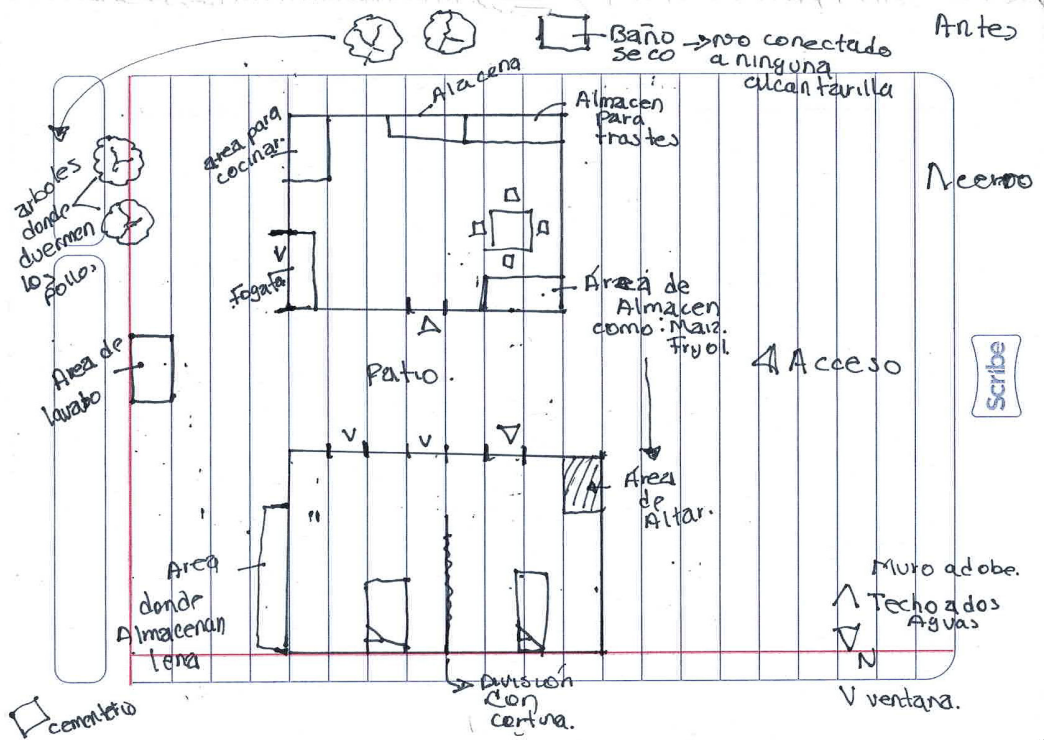 Antes
Baño
seco → no conectado
a ninguna
alcantarilla
Alacena
Almacen
para
trastes
area para
cocinar.
arboles
donde
duermen
los
pollos
V
Fogata
Área de
Almacen
como: Maiz.
Fryol.
Area de
lavabo
Patio.
Acceso
Scribe
V
V
Area
de
Altar.
Area
donde
Almacenan
lena
Muro adobe.
Techo a dos
Aguas
N
V ventana.
División
con
cortina.
cementerio